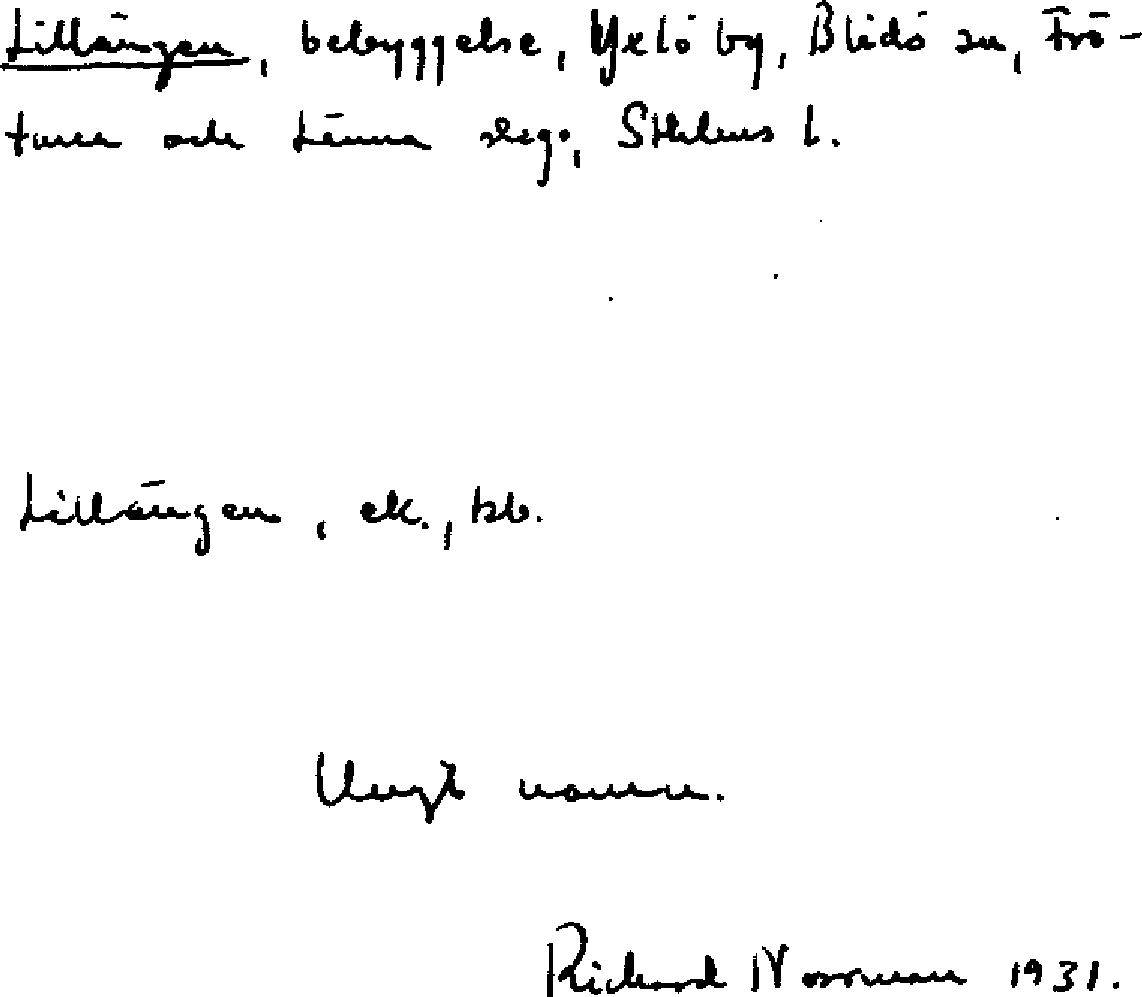 Lillängen, bebyggelse, Yxlö by, Blidö sn, Frö-
tuna och Länna slgo, Sthlms l.
Lillängen, ek., kb.
Ungt namn.
Richard Norrman 1931.